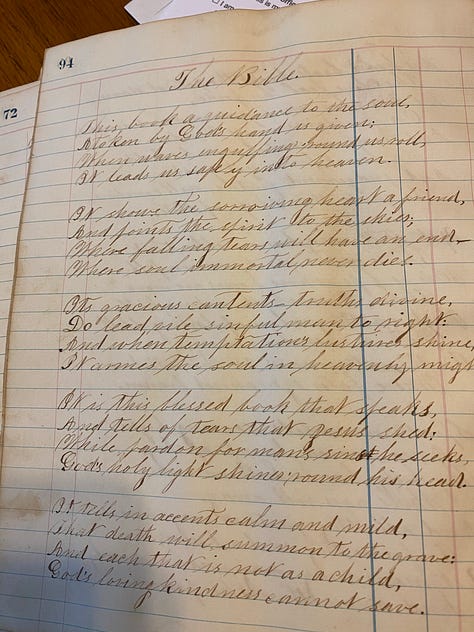 94
The Bible.
This, book a guidance to the soul,
A token by God's hand is given;
When waves engulfing 'round us roll,
It leads us safely into heaven.
It shows the sorrowing heart a friend,
And points the spirit to the skies;
Where falling tears will have an end,
Where soul immortal, never dies.
Its gracious contents truths divine,
Do lead vile, sinful man to right:
And when temptations lustures shine,
It armes the soul in heavenly migh
It is this blessed book that speaks,
And tells of tears that Jesus shed:
While pardon for man's sins he seeks,
God's holy light shines, 'round his head.
It tells in accents calm and mild,
That death will, summon to the grave:
And each that is not as a child,
God's loving kindness cannot save.
72
I am